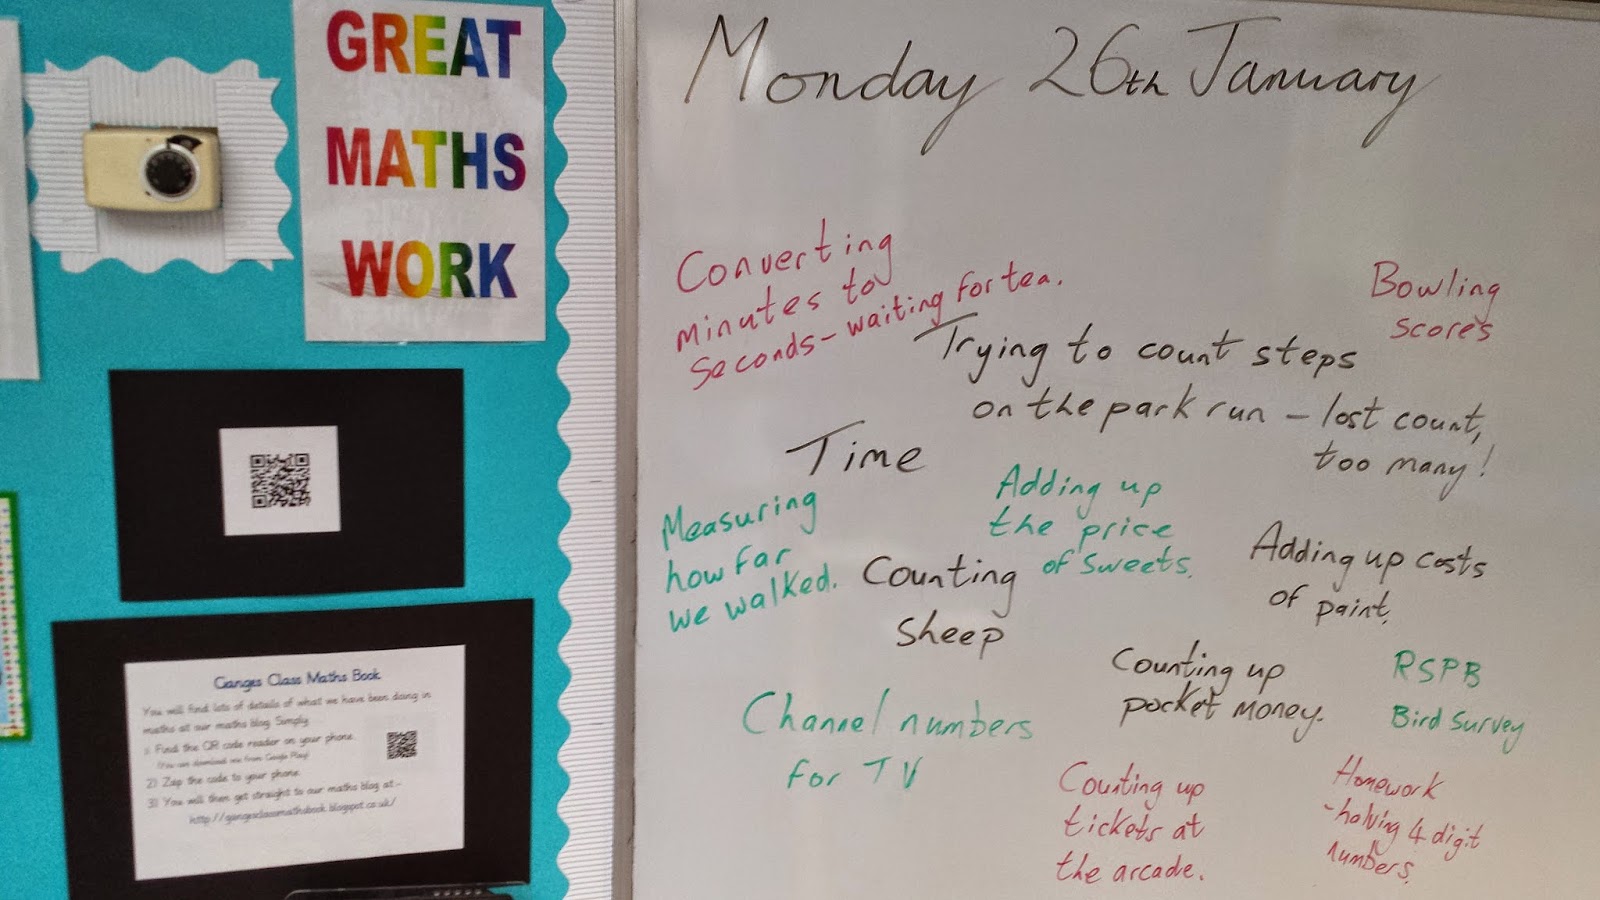 GREAT
MATHS
WORK
Ganges Class Maths Book
You will find lots of details of what we have been doing in
maths at our maths blog. Simply
1. Find the QR code reader on your phone.
(You can download one from Google Play)
2) Zap the code to your phone.
3) You will then get straight to our maths blog at:-
http://gangesclassmathsbook.blogspot.co.uk/
Monday 26th January
Converting
minutes to
seconds - waiting for tea.
Bowling
scores
Trying to count steps
on the park run - lost count,
too many!
Time
Measuring
how far
we walked.
Adding up
the price
of sweets.
Counting
sheep
Adding up costs
of paint.
Counting up
pocket money.
RSPB
Bird Survey
Channel numbers
for TV
Counting up
tickets at
the arcade.
Homework
- halving 4 digit
numbers.